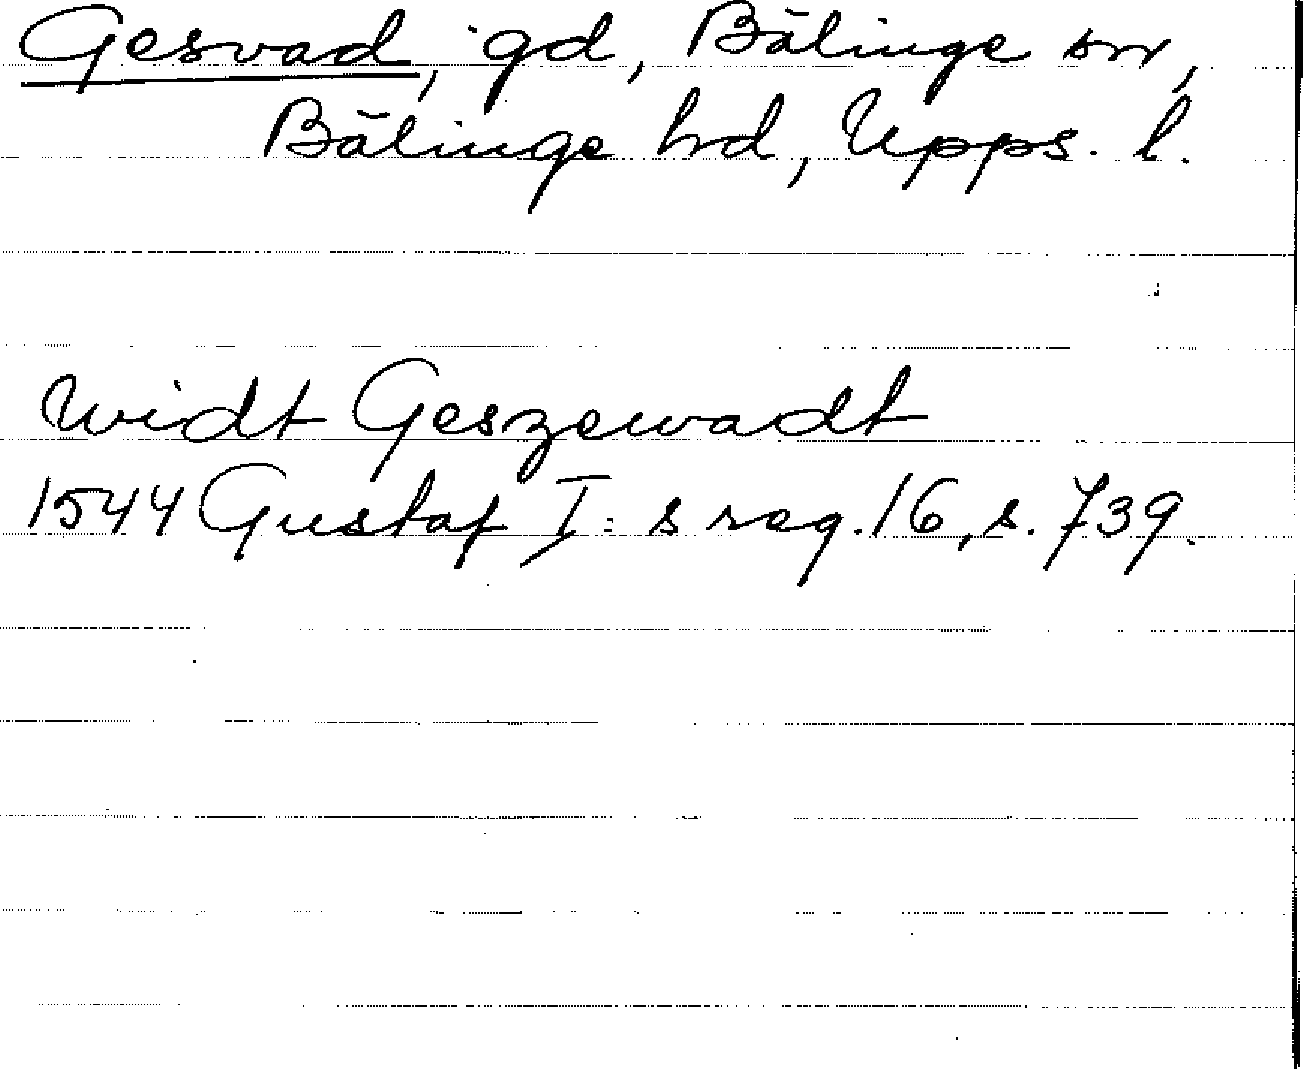 Gesvad, gd, Bälinge sn,
Bälinge hd, Upps. l.
widt Geszewadt
1544 Gustaf I:s reg. 16, s. 739.